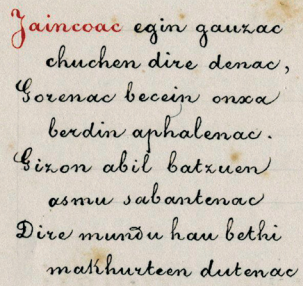 Jaincoac egin gauzac
chuchen dire denac,
Gorenac becein onxa
berdin aphalenac.
Gizon abil batzuen
asmu sabantenac
Dire mundu hau bethi
makhurteen dutenac